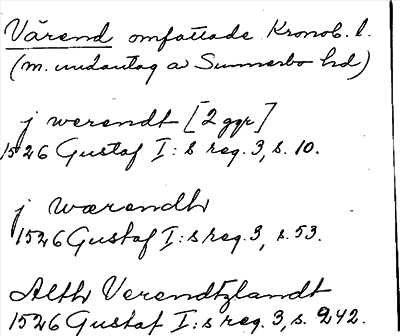 Värend omfattade Kronob. l.
(m. undantag av Sunnerbo hd)
j werendt [2 ggr]
1526 Gustaf I:s reg. 3, s. 10.
j wærendh
1526 Gustaf I:s reg. 3, s. 53.
Alth Verendtzlandt
1526 Gustaf I:s reg. 3, s. 242.